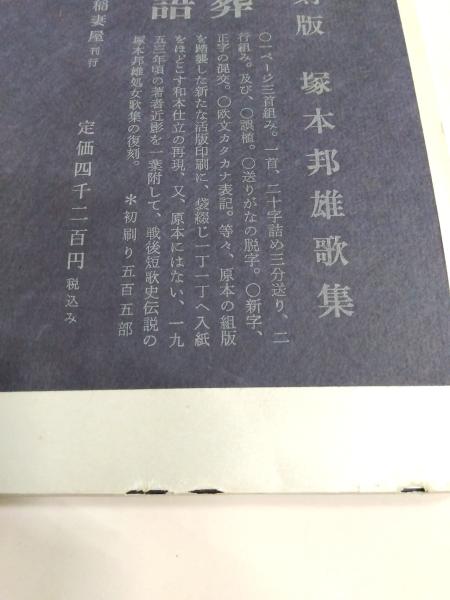 刻版 塚本邦雄歌集
葬
語
〇一ページ三首組み。一首、二十字詰め三分送り、二
行組み。及び、〇誤植。〇送りがなの脱字。〇新字、
正字の混交。〇欧文カタカナ表記。等々、原本の組版
を踏襲した新たな活版印刷に、袋綴じ一丁一丁へ入紙
をほどこす和本仕立の再現、又、原本にはない、一九
五三年頃の著者近影を一葉附して、戦後短歌史伝説の
塚本邦雄処女歌集の復刻。 *初刷り五百五部
定価四千二百円 税込み
稲妻屋 刊行